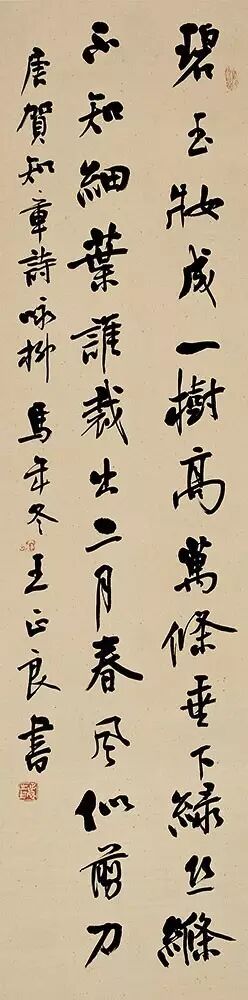 碧玉妝成一樹高萬條垂下綠丝縧
不知細葉誰裁出二月春風似剪刀
唐賀知章詩咏柳 馬年冬 王正良書